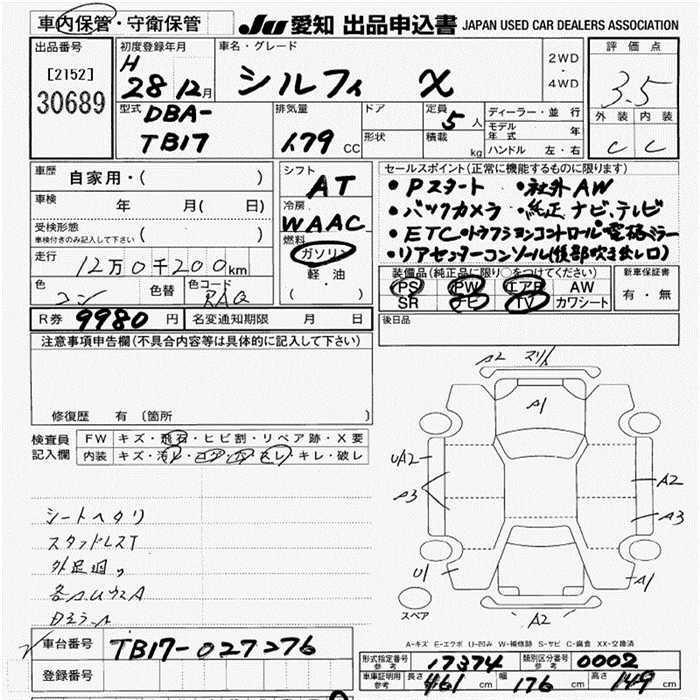 車内保管・守衛保管
JU 愛知 出品申込書 JAPAN USED CAR DEALERS ASSOCIATION
出品番号
[2152]
30689
初度登録年月
H
28年12月
車名・グレード
シルフィ X
2WD
・
4WD
評価点
3.5
外装 内装
C C
型式
DBA-
TB17
排気量
1.79 CC
ドア
形状
定員
5人
積載
kg
ディーラー・並行
モデル年式 年
ハンドル 左・右
車歴
自家用・( )
車検
年 月(日)
受検形態
車検付きのみ記入して下さい ( )
走行
12万0千200km
色
コン
色替
色コード
RAQ
シフト
AT
冷房
WAAC
燃料
ガソリン
軽・油
( ・ )
セールスポイント(正常に機能するものに限ります)
・Pスタート ・社外AW
・バックカメラ ・純正ナビ、テレビ
・ETC ・トラクションコントロール ・電格ミラー
・リアセンターコンソール(後部吹き出し口)
装備品(純正品に限り○をつけてください)
PS PW エアB AW
SR ナビ TV カワシート
新車保証書
有・無
R券 9980 円
名変通知期限 月 日
後日品
注意事項申告欄(不具合内容等は具体的に記入して下さい)
修復歴 有(箇所
検査員
記入欄
FW キズ・飛石・ヒビ割・リペア跡・X要
内装 キズ・汚レ・コゲ・穴・スレ・キレ・破レ
シートヘタリ
スタッドレスT
外足廻サ
A2 スリキズ
A1
UA2
A3
A2
A3
U1
A1
A2
スペア
A-キズ E-エクボ U-凹み W-補修跡 S-サビ C-腐食 XX-交換済
車台番号 TB17-027276
登録番号
形式指定番号
参考
17374
類別区分番号
参考
0002
車庫証明用
参考
長さ 461 cm 幅 176 cm 高さ 149 cm